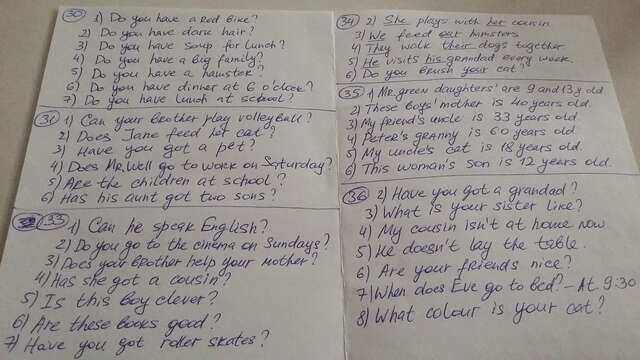 30 1) Do you have a red bike?
2) Do you have dark hair?
3) Do you have soup for lunch?
4) Do you have a big family?
5) Do you have a hamster?
6) Do you have dinner at 6 o'clock?
7) Do you have lunch at school?
31 1) Can your brother play volleyball?
2) Does Jane feed her cat?
3) Have you got a pet?
4) Does Mr. Well go to work on Saturday?
5) Are the children at school?
6) Has his aunt got two sons?
33 1) Can he speak English?
2) Do you go to the cinema on Sundays?
3) Does your brother help your mother?
4) Has she got a cousin?
5) Is this boy clever?
6) Are these books good?
7) Have you got roller skates?
34 2) She plays with her cousin
3) We feed our hamsters
4) They walk their dogs together.
5) He visits his grandad every week.
6) Do you brush your cat?
35 1) Mr. Green daughters' are 9 and 13 y. old
2) These boys' mother is 40 years old.
3) My friend's uncle is 33 years old.
4) Peter's granny is 60 years old.
5) My uncle's cat is 18 years old.
6) This woman's son is 12 years old.
36 2) Have you got a grandad?
3) What is your sister like?
4) My cousin isn't at home now
5) He doesn't lay the table.
6) Are your friends nice?
7) When does Eve go to bed? - At 9:30
8) What colour is your cat?